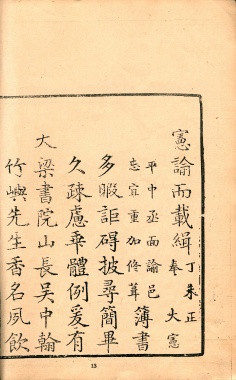 憲諭而載緝丁朱正奉大憲
平中丞面諭邑志宜重加修葺簿書
多暇詎碍披尋簡畢
久疎慮乖體例爰有
大梁書院山長吳中翰
竹嶼先生香名夙飲
13